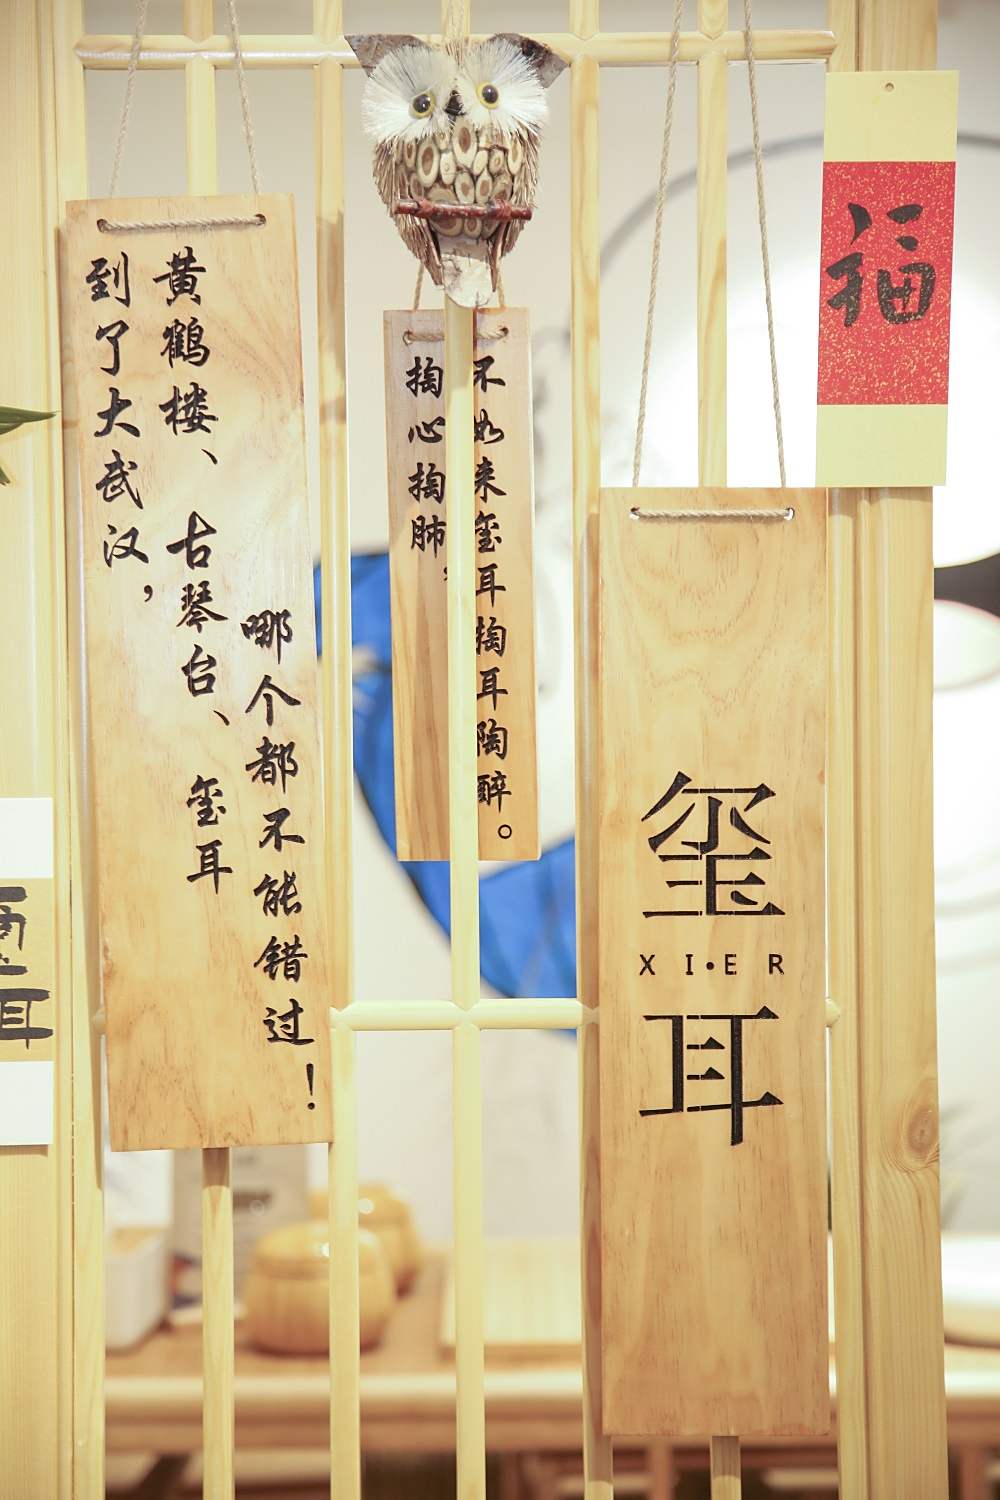 到了大武汉，
黄鹤楼、古琴台、玺耳
哪个都不能错过！
掏心掏肺，
不如来玺耳掏耳陶醉。
玺
XI·ER
耳
福
玺耳